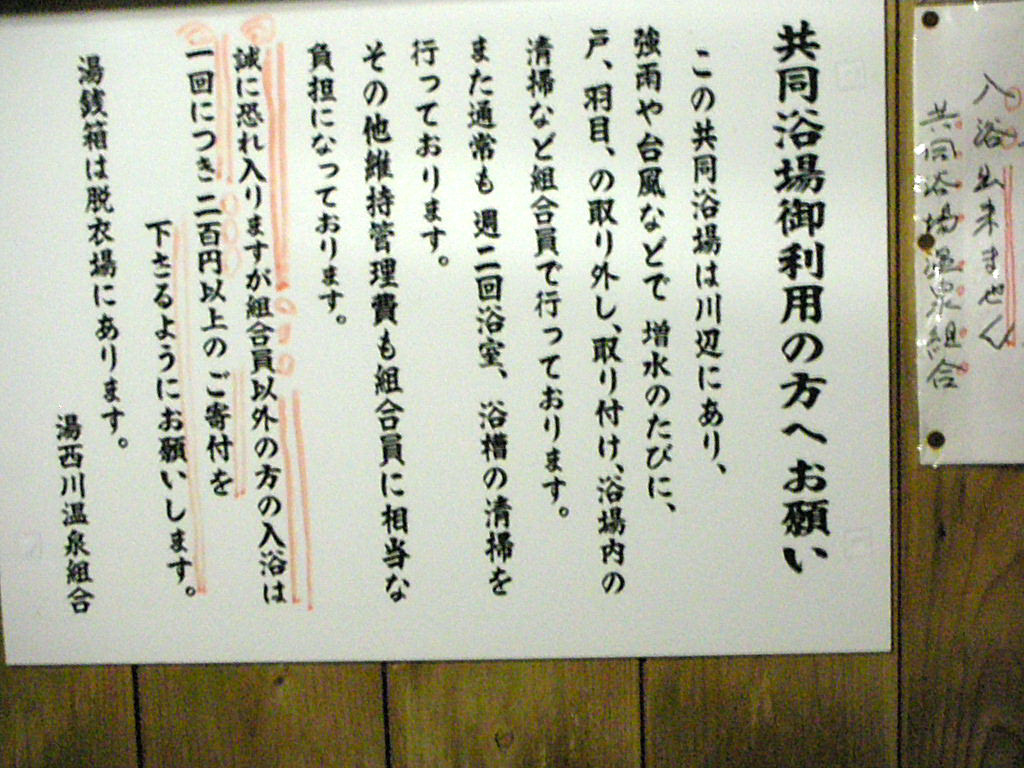 入浴出来ません
共同浴場温泉組合
共同浴場御利用の方へお願い
この共同浴場は川辺にあり、
強雨や台風などで 増水のたびに、
戸、羽目、の取り外し、取り付け、浴場内の
清掃など組合員で行っております。
また通常も 週二回浴室、浴槽の清掃を
行っております。
その他維持管理費も組合員に相当な
負担になっております。
誠に恐れ入りますが組合員以外の方の入浴は
一回につき二百円以上のご寄付を
下さるようにお願いします。
湯銭箱は脱衣場にあります。
湯西川温泉組合